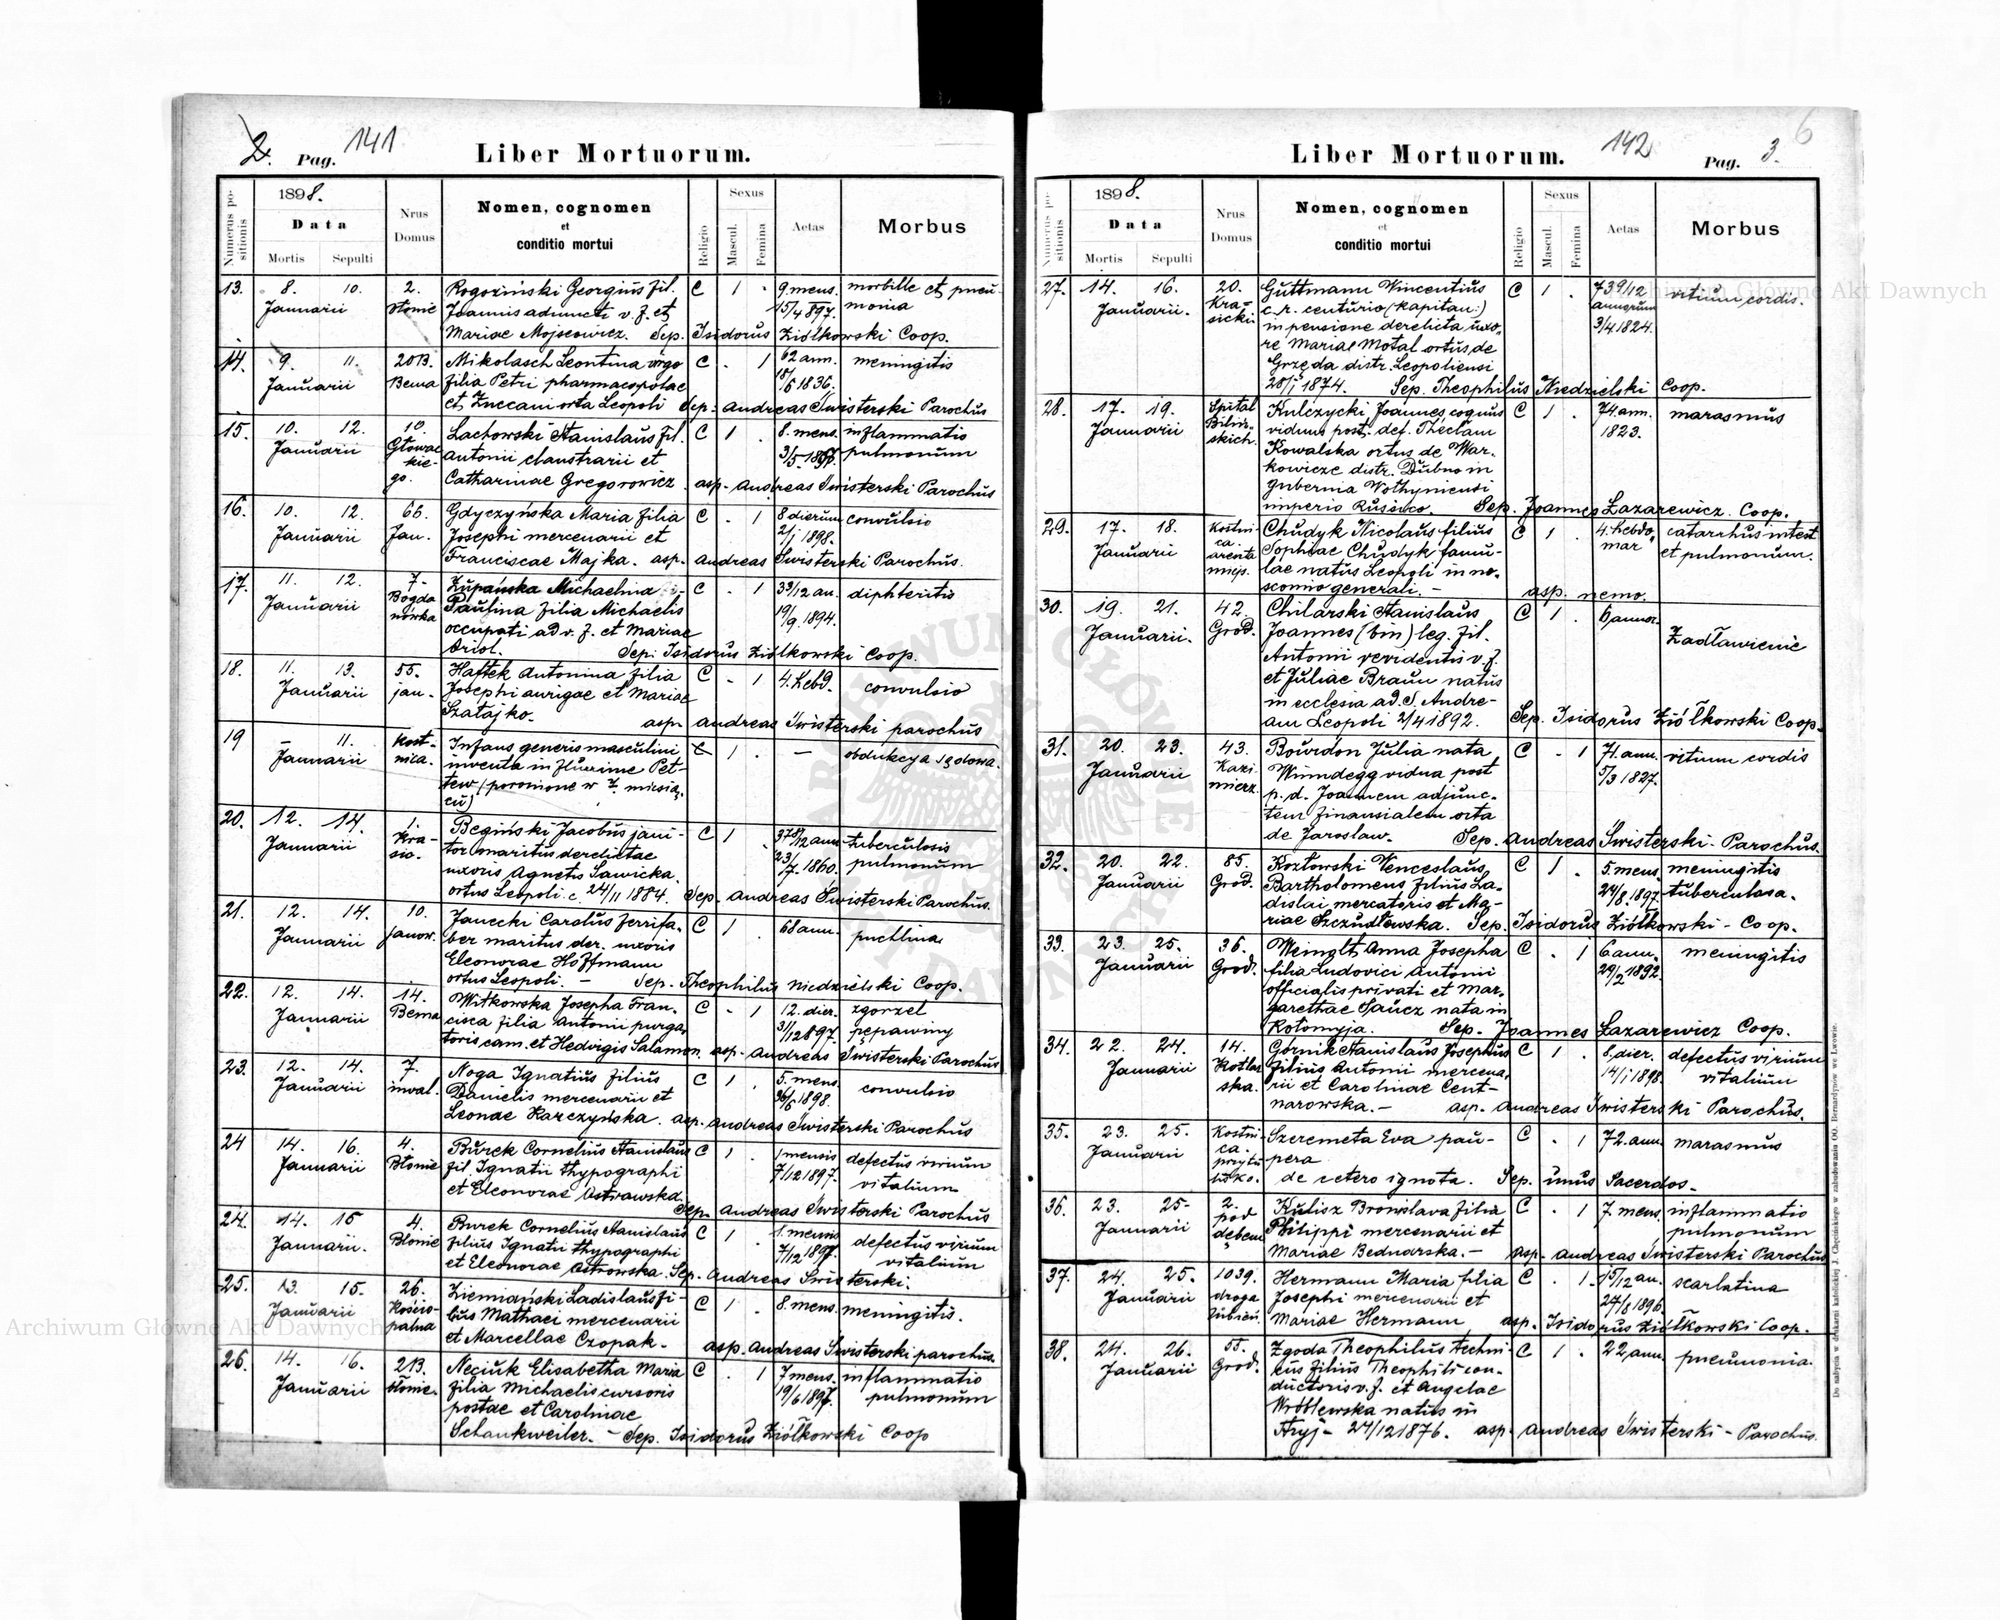 2. Pag. 141
Liber Mortuorum.
Numerus positionis
1898.
Data
Mortis Sepulti
Nrus Domus
Nomen, cognomen
et
conditio mortui
Religio
Sexus
Mascul. Femina
Aetas
Morbus
13. 8. 10. 2. Rogoziński Georgius fil. C 1 . 9. mens. morbille et pneu-
Januarii Błonie Joannis adiuncti v. f. et 15/4 897. monia
Mariae Mojseowicz. Sep. Isidorus Ziółkowski Coop.
14. 9. 11. 20B. Mikolasch Leontina virgo C . 1 62 ann. meningitis
Januarii Bema filia Petri pharmacopolae 18/5 1836.
et Zuccani orta Leopoli Sep. Andreas Świsterski Parochus
15. 10. 12. 10. Lachowski Stanislaus fil. C 1 . 8. mens. inflammatio
Januarii Głowac Antonii claustrarii et 3/5 1897. pulmonum
kie-
go. Catharinae Gregorowicz. asp. Andreas Świsterski Parochus
16. 10. 12. 66. Gdyczyńska Maria filia C . 1 8 dierum convulsio
Januarii Jan. Josephi mercenarii et 2/1 1898.
Franciscae Majka. asp. Andreas Świsterski Parochus.
17. 11. 12. 7. Zupańska Michaelina C . 1 3 3/12 an. diphteritis
Januarii Bogda Paulina filia Michaelis 19/9. 1894.
nówka occupati ad v. f. et Mariae
Oriol. Sep. Isidorus Ziółkowski Coop.
18. 11. 13. 55. Haftek Antonina filia C . 1 4. hebd. convulsio
Januarii jan. Josephi aurigae et Mariae
Szatajko. asp. Andreas Świsterski parochus
19 – 11. Kost- Infans generis masculini C 1 . – obdukcya sądowa.
Januarii nica. inventa in flumine Pet-
tew (poronione w 7. miesią-
cu)
20. 12. 14. 1. Begiński Jacobus jani- C 1 . 37 8/12 ann. tuberculosis
Januarii Kra- tor maritus derelictae 23/7. 1860. pulmonum
sic. uxoris Agnetis Sawicka.
ortus Leopoli c. 24/11 1884. Sep. Andreas Świsterski Parochus.
21. 12. 14. 10. Janecki Carolus ferrifa- C 1 . 68 ann. puchlina
Januarii janow. ber maritus der. uxoris
Eleonorae Hoffmann
ortus Leopoli. – Sep. Theophilus Niedzielski Coop.
22. 12. 14. 14. Witkowska Josepha Fran- C . 1 12. dier. zgorzel
Januarii Bema cisca filia Antonii purga- 31/12 897. pępawiny
toris cam. et Hedvigis Salamon. asp. Andreas Świsterski Parochus
23. 12. 14. 7. Noga Ignatius filius C 1 . 5. mens. convulsio
Januarii inwal. Danielis mercenarii et 1898.
Leonae Karczyńska. asp. Andreas Świsterski Parochus
24 14. 16. 4. Burek Cornelius Stanislaus C 1 . 1 mensis defectus virium
Januarii Błonie fil. Ignatii thypographi 7/12 1897. vitalium
et Eleonorae Ostrowska.
Sep. Andreas Świsterski Parochus
24. 14. 15 4. Burek Cornelius Stanislaus C 1 . 1. mensis defectus virium
Januarii. Błonie filius Ignatii thypographi 7/12 1897. vitalium
et Eleonorae Ostrowska. Sep. Andreas Świsterski.
25. 13. 15. 26. Ziemiański Ladislaus fi- C 1 . 8. mens. meningitis.
Januarii Kościo- lius Mathaei mercenarii
palna et Marcellae Czopak. asp. Andreas Świsterski parochus.
26. 14. 16. 21B. Neciuk Elisabetha Maria C . 1 7 mens. inflammatio
Januarii Błonie. filia Michaelis cursoris 19/6 1897. pulmonum
postae et Carolinae
Schankweiler. – Sep. Isidorus Ziółkowski Coop
Liber Mortuorum.
142 Pag. 3. 6
Numerus positionis
1898.
Data
Mortis Sepulti
Nrus Domus
Nomen, cognomen
et
conditio mortui
Religio
Sexus
Mascul. Femina
Aetas
Morbus
27. 14. 16. 20. Guttmann Vincentius C 1 . 73 9/12 vitium cordis.
Januarii. Kra- c. r. centurio (kapitan:) annorum
sicki in pensione derelicta uxo- 3/4 1824.
re Maria Motal ortus de
Grzęda distr. Leopoliensi
28/1 1874. Sep. Theophilus Niedzielski Coop.
28. 17. 19. Szpital Kulczycki Joannes coquus C 1 . 74 ann. marasmus
Januarii Biliń- viduus post. def. Theclam 1823.
skich. Kowalska ortus de War-
kowicze distr. Dubno in
gubernia Wołhyniensi
imperio Russico. Sep. Joannes Lazarewicz Coop.
29. 17. 18. Kostni- Chudyk Nicolaus filius C 1 . 4. hebdo- catarrhus intest
Januarii ca Sophiae Chudyk famu- mar et pulmonum.
areszta lae natus Leopoli in no-
miejs. socomio generali. – asp. nemo.
30. 19. 21. 42. Chilarski Stanislaus C 1 . 6 annor. Zadławienie
Januarii. Grod. Joannes (bin) leg. fil.
Antonii revidentis v. f.
et Juliae Braun natus
in ecclesia ad S. Andre-
am Leopoli 2/4 1892. Sep. Isidorus Ziółkowski Coop.
31. 20. 23. 43. Bourdon Julia nata C . 1 71. ann. vitium cordis
Januarii Kazi- Wimdegg vidua post 5/3 1827.
mierz. p. d. Joannem adjunc-
tem finansialem orta
de Jaroslaw. Sep. Andreas Świsterski. Parochus.
32. 20. 22. 85. Kozłowski Venceslaus C 1 . 5. mens. meningitis
Januarii Grod. Bartholomeus filius La- 24/8. 1897. tuberculosa.
dislai mercatoris et Ma-
riae Szczudłewska. Sep. Isidorus Ziółkowski – Coop.
33. 23. 25. 36. Weinglt Anna Josepha C . 1 6 ann. meningitis
Januarii Grod. filia Ludovici Antonii 29/2 1892.
officialis privati et Mar-
garethae Saucz nata in
Kołomyja. Sep. Joannes Lazarewicz Coop.
34. 22. 24. 14. Górnik Stanislaus Josephus C 1 . 8, dier. defectus virium
Januarii Kotlar- filius Antonii mercena- 14/1 1898. vitalium
ska. rii et Carolinae Cent-
narowska. – asp. Andreas Świsterski Parochus.
35. 23. 25. Kostni- Szeremeta Eva pau- C . 1 72. ann. marasmus
Januarii ca pera
przytu
lisko. de cetero ignota. Sep. unus Sacerdos.
36. 23. 25. 2. Kulisz Bronislava filia C . 1 7. mens. inflammatio
Januarii pod Philippi mercenarii et pulmonum
dębem Mariae Bednarska. – asp. Andreas Świsterski Parochus
37. 24. 25. 1039. Hermann Maria filia C . 1 1 5/12 an. scarlatina
Januarii droga Josephi mercenarii et 27/8 1896.
lubień. Mariae Hermann asp. Isidorus Ziółkowski Coop.
38. 24. 26. 55. Zgoda Theophilus techni- C 1 . 22, ann. pneumonia.
Januarii Grod. cus filius Theophili con-
ductoris v. f. et Angelae
Wróblewska natus in
Stryj – 24/12 1876. asp. Andreas Świsterski – Parochus.
Do nabycia w drukarni katolickiej J. Chęcińskiego w zabudowaniu OO. Bernardynów we Lwowie.
Archiwum Główne Akt Dawnych
Archiwum Główne Akt Dawnych
ARCHIWUM GŁÓWNE AKT DAWNYCH